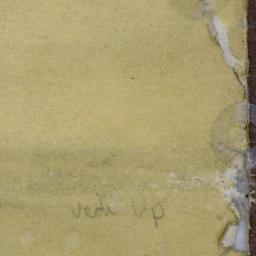 vedi Up